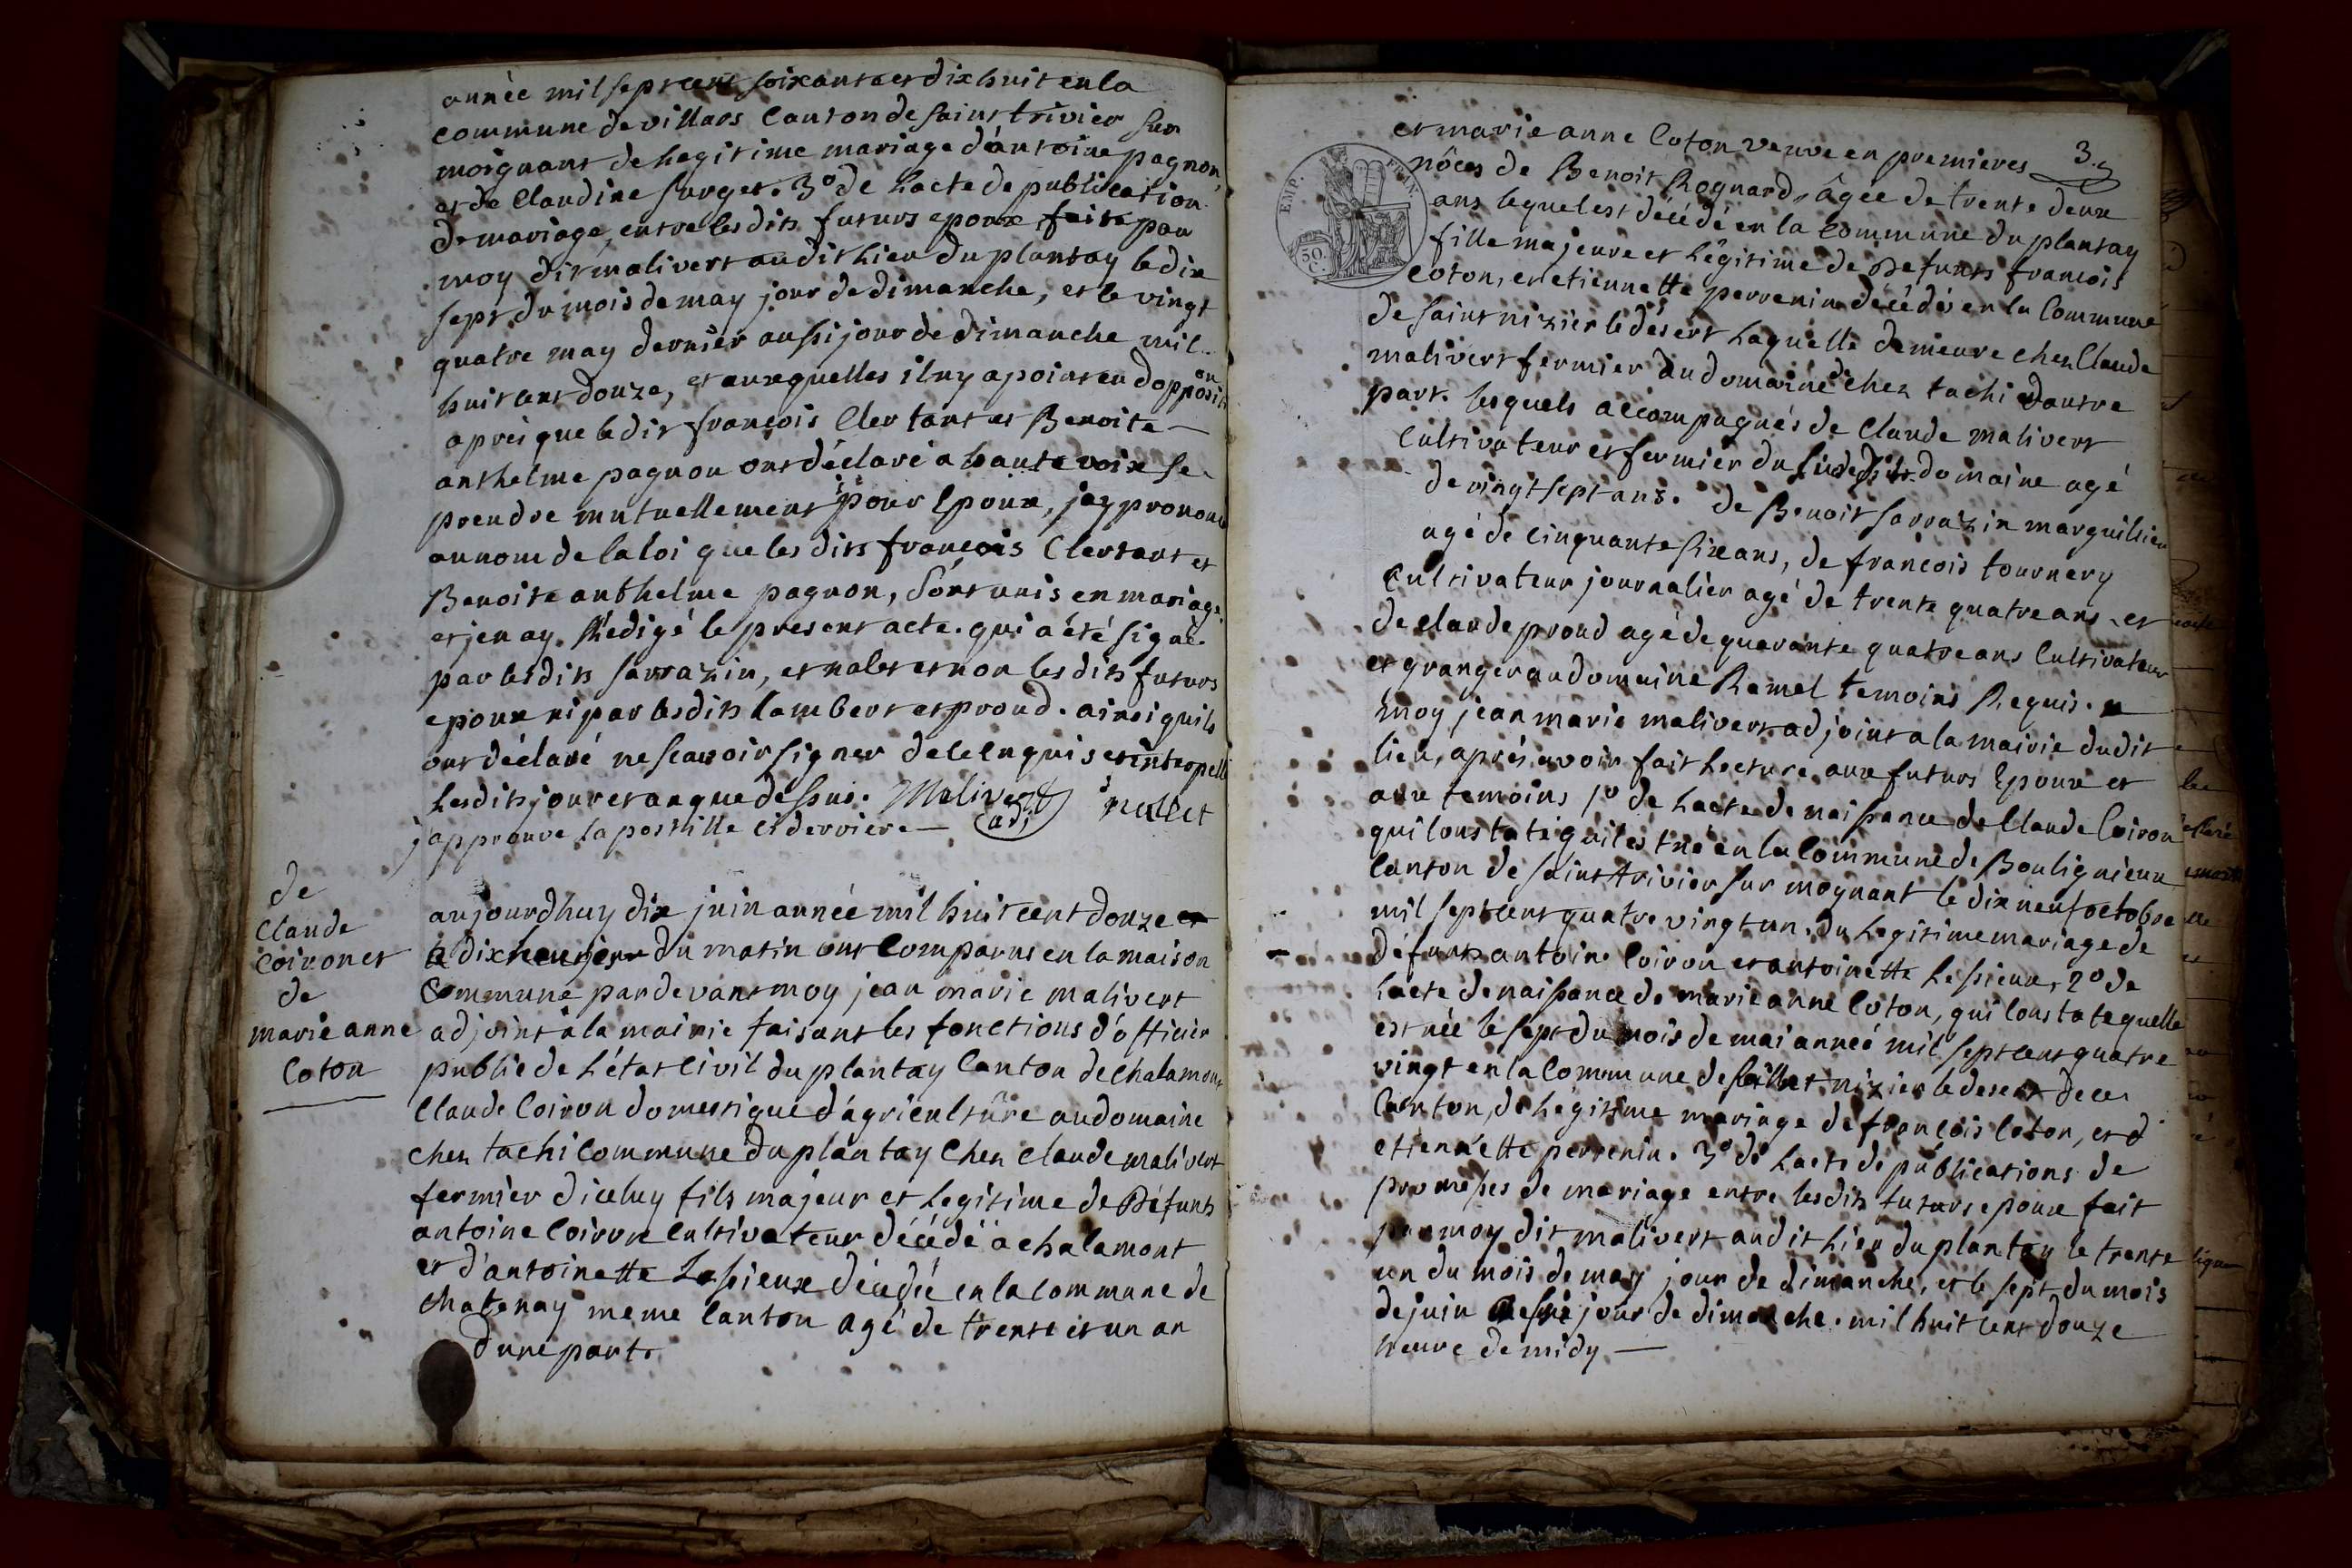 année mil sept cent soixante et dix huit en la
commune de villars Canton de saint trivier sur
moignant de legitime mariage d'antoine pagnon,
et de Claudine surget. 3º de Lacte de publication
de mariage, entre les dits futurs epoux faite par
moy dit malivert au dit Lieu du plantay le dix
sept du mois de may jour de dimanche, et le vingt
quatre may dernier aussi jour de dimanche mil
huit cent douze, et auxquelles il ny a point eu dopposition
aprés que le dit françois Clertant et Benoite —
anthelme pagnon ont déclaré a haute voix se
prendre mutuellement pour Epoux, jay prononcé
au nom de la loi que les dits françois Clertant et
Benoite anthelme pagnon, sont unis en mariage
et jen ay Rédigé le present acte. qui a été signé
par les dits sarrazin, et nalet et non les dits futurs
epoux ni par les dits Lambert et proud. ainsi quils
ont déclaré ne scavoir signer de ce enquis et interpellé
Lesdits jour et an que dessus. Malivert adj nallet
japprouve la postille ci derriere —
de
Claude
Coiron et
de
marie anne
Coton
aujourdhuy dix juin année mil huit cent douze
a dix heures du matin ont Comparus en la maison
Commune pardevant moy jean marie malivert
adjoint à la mairie faisant les fonctions d'officier
public de L'état Civil du plantay Canton de Chalamont
Claude Coiron domestique d'agriculture au domaine
chez tachi Commune du plantay Chez Claude malivert
fermier diceluy fils majeur et Legitime de Défunts
antoine Coiron Cultivateur décédé a chalamont
et d'antoinette Lessieux décédée en la Commune de
Chatenay meme Canton agé de trente et un an
dune part.
3.
EMP. FRAN.
50 C.
et marie anne Coton veuve en premieres
nôces de Benoit Rognard, âgée de trente deux
ans lequel est décédé en la Commune du plantay
fille majeure et Légitime de Defunts françois
Coton, et etiennette perrenin décédés en la Commune
de saint nizier le désert Laquelle demeure chez Claude
malivert fermier du domaine chez tachi Dautre
part. lesquels accompagnés de Claude malivert
Cultivateur et fermier du susdit domaine agé
de vingt sept ans. de Benoit sarrazin marguillier
agé de Cinquante six ans, de françois tournery
Cultivateur journalier agé de trente quatre ans, et
de claude proud agé de quarante quatre ans Cultivateur
et granger au domaine Ramel temoins Requis.
moy jean marie malivert adjoint a la mairie dudit
lieu, aprés avoir fait Lecture aux futurs Epoux et
aux temoins 1º de Lacte de naissance de Claude Coiron
qui Constate quil est né en la Commune de Bouligneux
Canton de saint trivier sur moignant le dix neuf octobre
mil sept cent quatre vingt un, du Legitime mariage de
défunts antoine Coiron et antoinette Lessieux, 2º de
Lacte de naissance de marie anne Coton, qui Constate quelle
est née le sept du mois de mai année mil sept cent quatre
vingt en la Commune de saint nizier le desert de ce
Canton, de Legitime mariage de françois Coton, et d
etiennette perrenin. 3º de Lacte de publications de
promesses de mariage entre lesdits futurs epoux fait
par moy dit malivert au dit Lieu du plantay le trente
un du mois de may jour de dimanche, et le sept du mois
de juin jour de dimanche. mil huit cent douze
heure de midy —